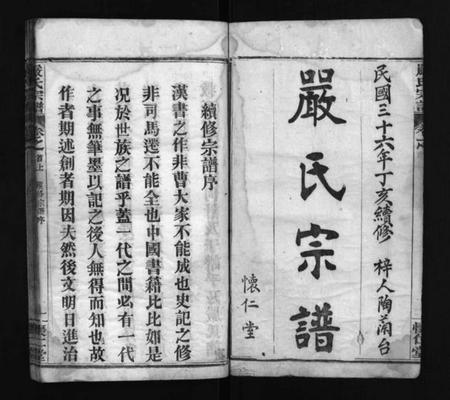 民國三十六年丁亥續修 梓人陶蘭台
嚴氏宗譜
懷仁堂
續修宗譜序
漢書之作非曹大家不能成也史記之修
非司馬遷不能全也中國書籍比比如是
况於世族之譜乎蓋一代之間必有一代
之事無筆墨以記之後人無得而知也故
作者期述創者期因夫然後文明日進治
嚴氏宗譜 卷之首上 續修宗譜序